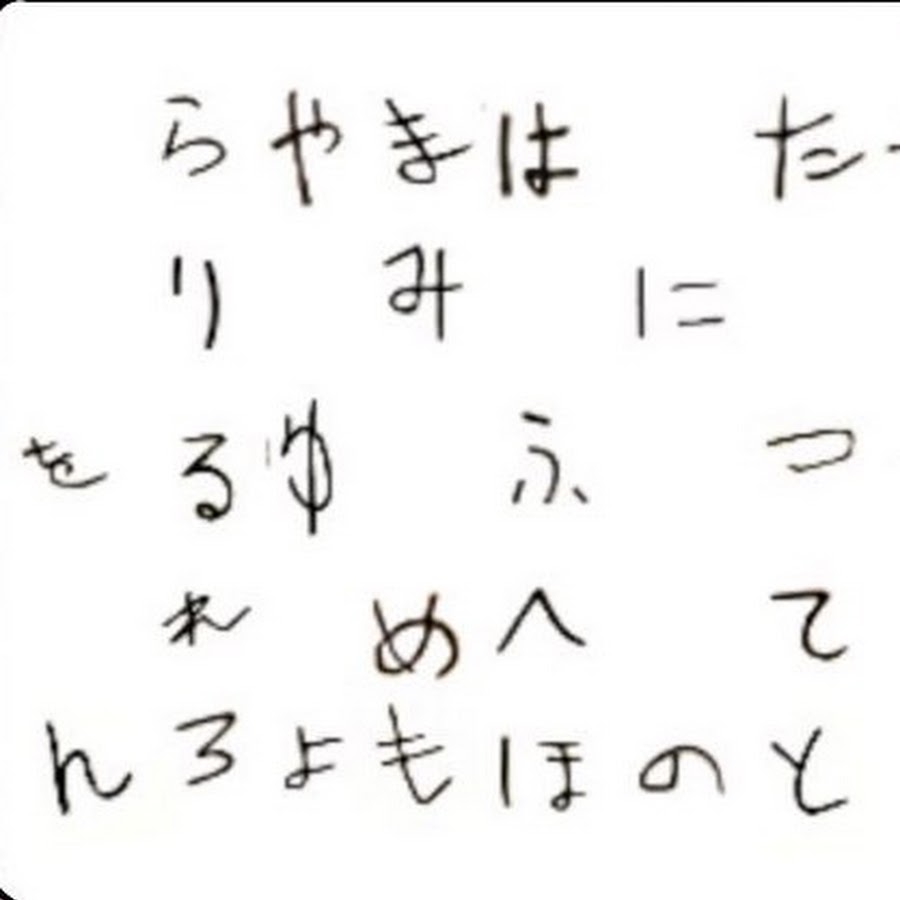 らやまは た
り み に
をるゆ ふ つ
れ めへ て
んろよもほのと